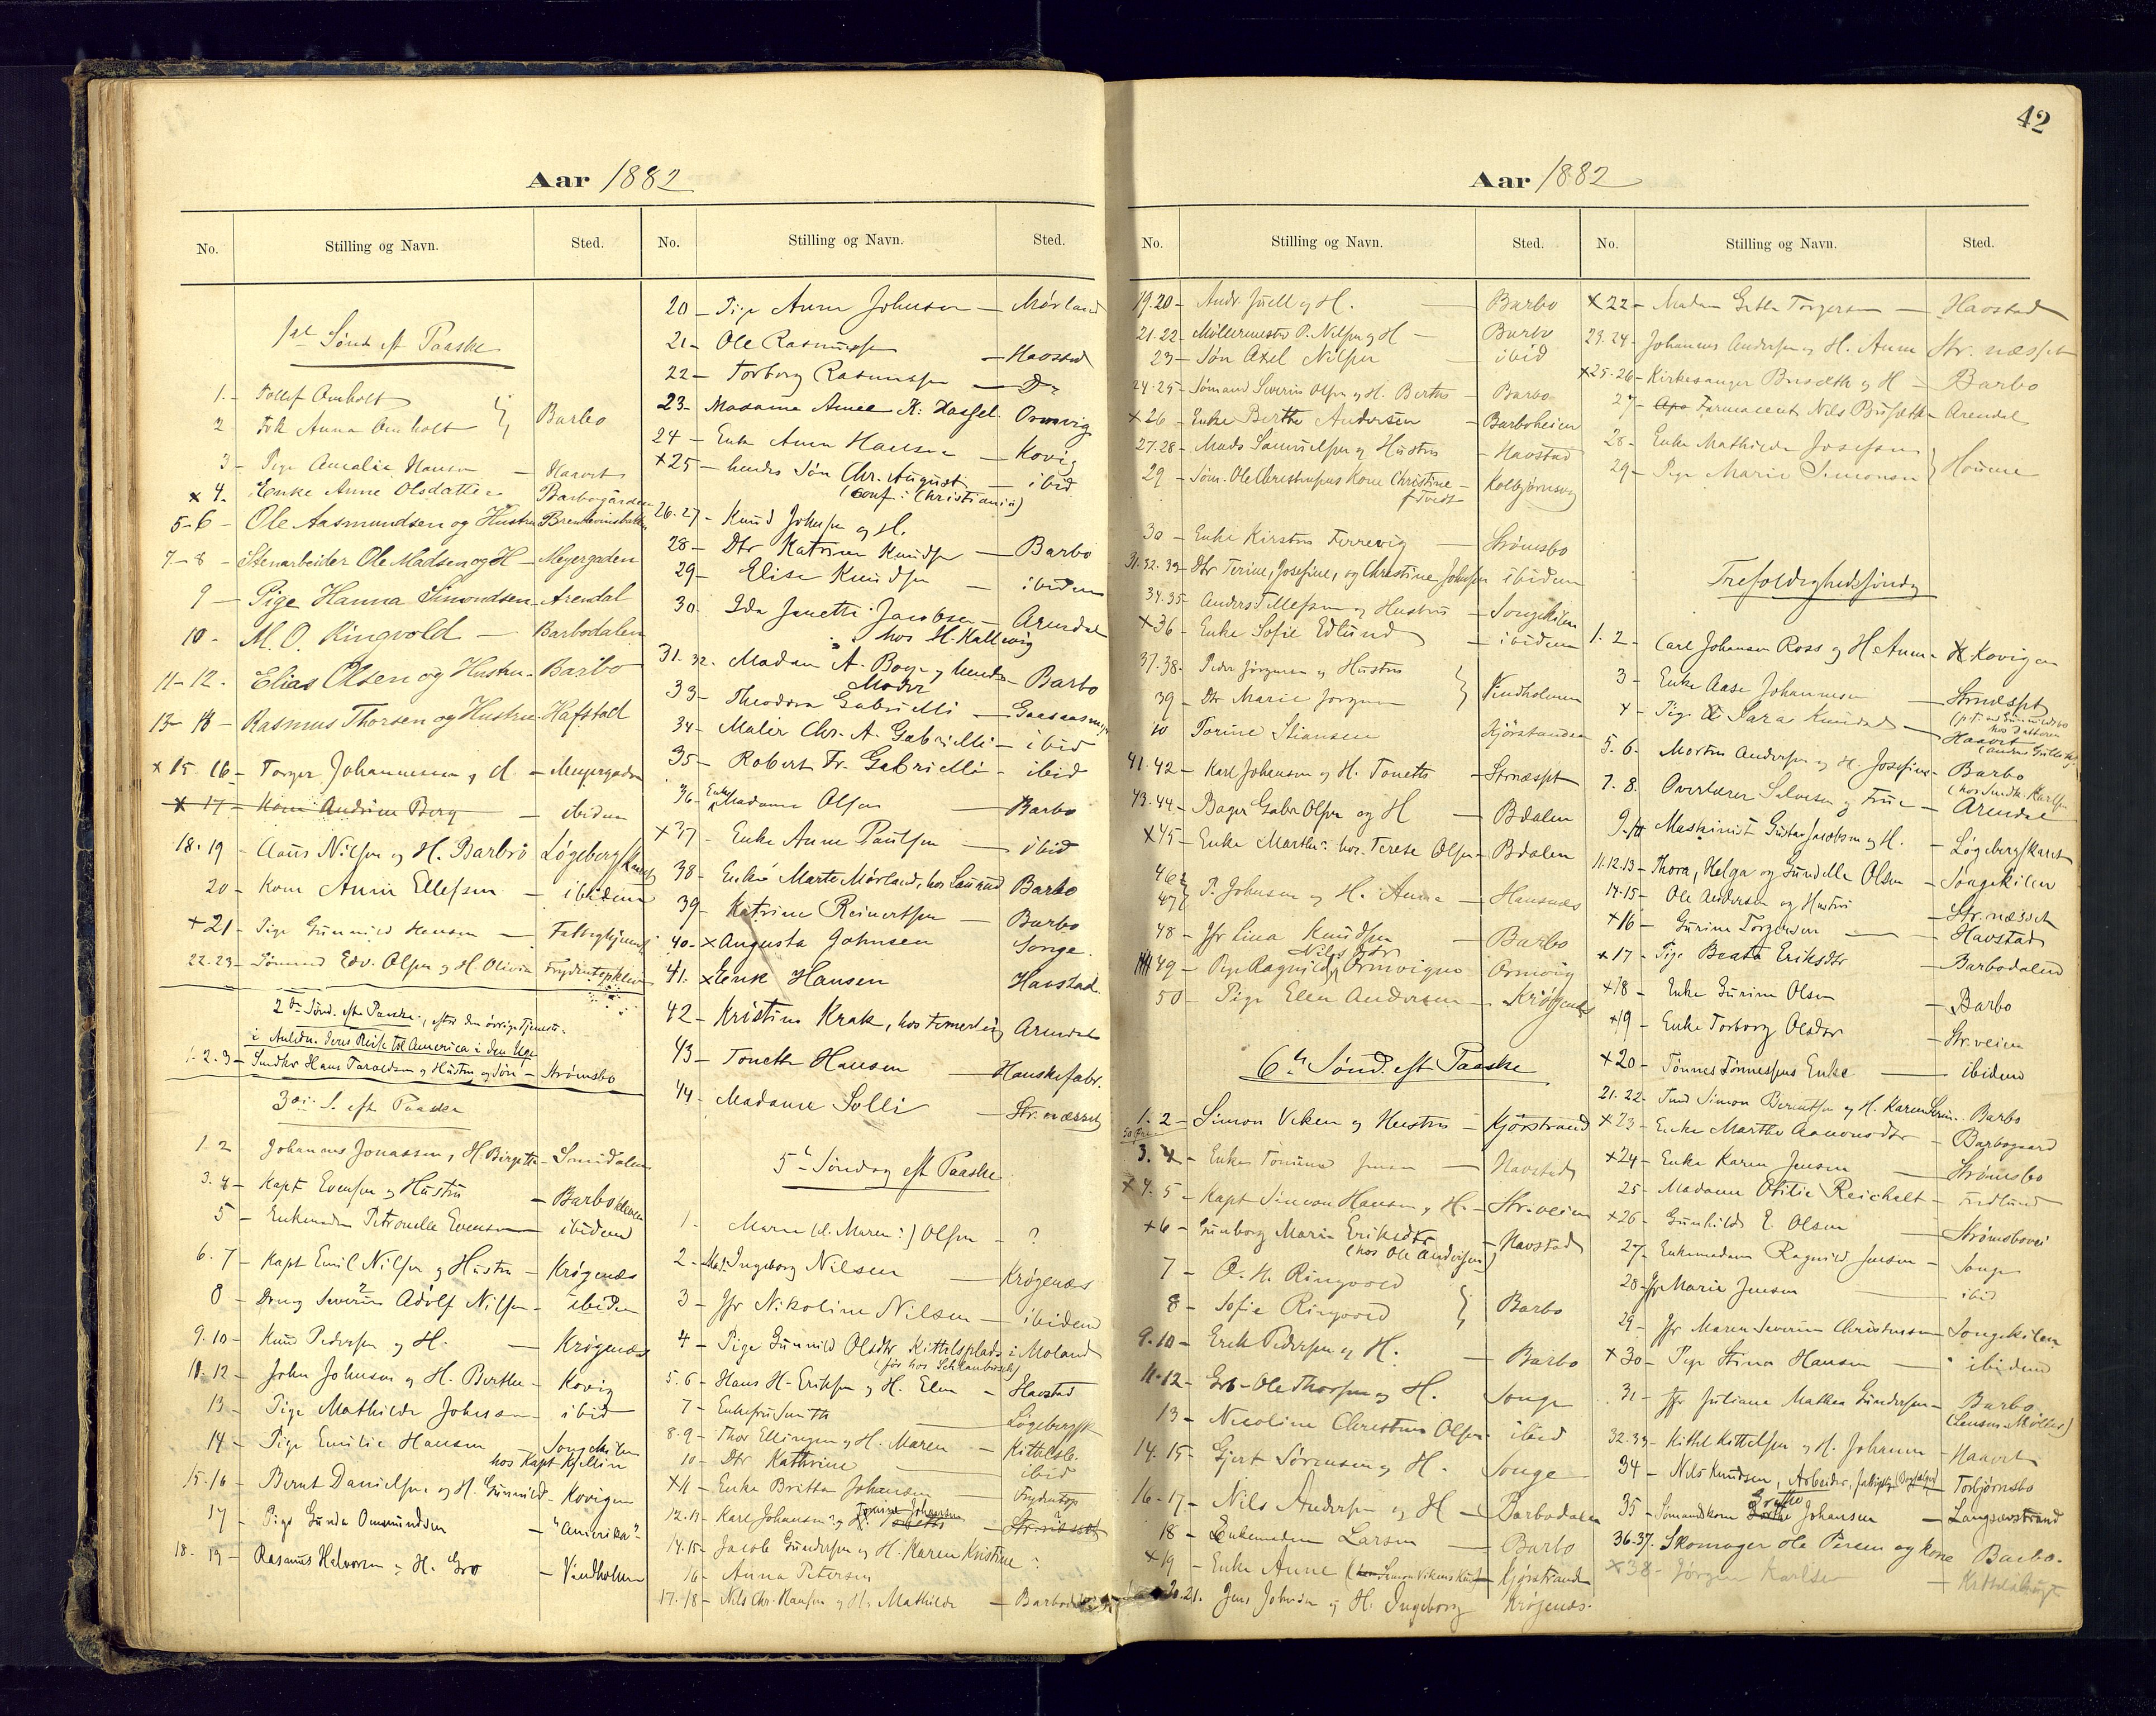 42
Aar 1882
No. Stilling og Navn. Sted. No. Stilling og Navn. Sted.
1ste Sønd. eft Paaske
1. - Tellef Omholt
2 Frk Anna Omholt } Barbo
3 - Pige Amalie Hansen -
x 4. - Enke Anne Olsdatter Barbogården
5-6 - Ole Aasmundsen og Hustru
7-8 - Stenarbeider Ole Madsen og H - Meyergaden
9 - Pige Hanna Simondsen - Arendal
10 - M. O. Ringvold - Barbodalen
11-12. Elias Olsen og Hustru - Barbo
13-14 - Rasmus Thorsen og Hustru - Hafstad
x 15. 16 - Torger Johannesen og H - Meyergaden
x 17 - Kone Andrine Berg - ibidem
18. 19 - Nilsen og H. Barbro Løgebergskaret
20 - Kone Anne Ellefsen - ibidem
+21 - Pige Gunnild Hansen -
22. 23 - Sømand Edv. Olsen og H. Olivia
2den Sønd. efter Paaske, efter den øvrige Tjeneste
i Anledn. deres Reise til America i den Uge
1. 2. 3 - Snedker Hans Taraldsen og Hustru og Søn - Strømsbo
3die S. eft Paaske
1. 2 Johannes Jonassen, H. Birgitte - Smidalen
3. 4 - Kapt Evensen og Hustru - Barbo
5 - Enkemadm Petronelle Evensen - ibidem
6. 7 - Kapt Emil Nilsen og Hustru - Krøgenæs
8 - Dreng Severin Adolf Nilsen - ibidem
9. 10 - Knud Pedersen og H. - Krøgenæs
11. 12 - John Johnsen og H. Berthe - Kovig
13 - Pige Mathilde Johnsen - ibid
14 - Pige Emilie Hansen Songekilen
hos Kapt Kjellin
15. 16 - Bernt Danielsen og H. Gunnild - Kovigen
17 - Pige Gunda Omundsen - "Amerika"
18. 19 - Rasmus Halvorsen og H. Gro - Vindholmen
20 - Pige Anna Johnsen - Mørland
21 - Ole Rasmussen - Havstad
22 - Torborg Rasmussen - Do
23 - Madame Amee K. Hassel Ormvig
24 - Enke Anna Hansen - Kovig
+25 - hendes Søn Chr. August - ibid
(conf. i Christiania)
26. 27 - Knud Johnsen og H.
28 - Dtr Katrine Knudsen - Barbo
29 - Elise Knudsen - ibidem
30 Ida Janette Jacobsen - Arendal
hos H. Kallevig
31. 32. Madam A. Boye og hendes Moder - Barbo
33 - Theodora Gabrielli -
34 - Maler Chr. A. Gabrielli - ibid
35 - Robert Fr. Gabrielli - ibid
36 - Enke Madame Olsen - Barbo
+37 - Enke Anne Paulsen - ibid
38 - Enke Marte Mørland, hos Barbo
39 - Katrine Reinertsen - Barbo
40 - x Augusta Johnsen Songe.
41. x Enke Hansen Havstad.
42 - Kristine Krak, hos Arendal
43 - Tonette Hansen - Hanskefabr.
44 - Madame Solli - Str. næsset
5te Søndag eft Paaske
1. Maren (el. Maren:) Olsen - ?
2 - Mad. Ingeborg Nilsen - Krøgenæs
3 - Jfr Nikoline Nilsen - ibidem
4 - Pige Gunnild Olsdtr Kittelsplads i Moland
(før hos Schlanbusch)
5. 6 - Hans H. Eriksen og H. Elen - Havstad
7 - Enkefru Smith - Løgebergsk
8. 9 - Thor Ellingsen og H. Maren - Kittelsb.
10 - Dtr Kathrine - ibid
x11 - Enke Britta Johansen - Frydentop
12. 13 - Karl Johansen og H.
14. 15 - Jacob Gundersen og H. Karen Kristine
16 - Anna Petersen
17. 18 - Nils Chr. Hansen og H. Mathilde - Barbodalen
Aar 1882
No. Stilling og Navn. Sted. No. Stilling og Navn. Sted.
19. 20 - Andr. Juell og H. - Barbo
21. 22 - Møllermester P. Nilsen og H - Barbo
23 - Søn Axel Nilsen - ibid
24. 25 - Sømand Severin Olsen og H. Berthe - Barbo
x 26 - Enke Berthe Andersen - Barboheien
27. 28 - Mads Samuelsen og Hustru - Havstad
29 - Søm. Ole Christophersens Kone Christine - Kolbjørnsvig
f. Tvedt
30 - Enke Kirstine Ferrevig - Strømsbo
31. 32. 33 - Dtr Terine, Josefine, og Christine Johnsen ibidem
34. 35 - Anders Tellefsen og Hustru - Songekilen
x 36 - Enke Sofie Edlund - ibidem
37. 38 - Peder Jørgensen og Hustru
39 - Dtr Marie Jørgensen } Vindholmen
40 Torine Stiansen Kjørstranden
41. 42 - Karl Johansen og H. Tonette - Strnæsset
43. 44 - Bager Gabr. Olsen og H - Bdalen
x45 - Enke Marthe: hos. Terese Olsen - Bdalen
46 47 P. Johnsen og H. Anna - Hansnæs
48 - Jfr Lina Knudsen - Barbo
49 - Pige Ragnild Nilsdtr Ormvignes Ormvig
50 - Pige Elen Andersen - Krøgenæs
6te Sønd. eft Paaske
1. 2 - Simon Viken og Hustru - Kjørstrand
3. - Enke Jensen - Havstad
x 4. 5 - Kapt Simon Hansen og H. - Str. veien
+6 - Gunborg Marie Eriksdtr - Havstad
(hos Ole Andersen)
7 - O. H. Ringvold
8 - Sofie Ringvold } Barbo
9. 10 - Erik Pedersen og H. - Barbo
11-12 - Grb. Ole Thorsen og H. Songe
13 - Nicoline Christine Olsen ibid
14. 15 - Gjert Sørensen og H. Songe
16-17 - Nils Andersen og H - Barbodalen
18 - Enkemadm Larsen - Barbo
x19 - Enke Anne - Kjørstranden
20. 21. Jens Johnsen og H. Ingeborg Krøgenæs.
x22 - Madam Torgersen - Havstad
23. 24 - Johannes Andersen og H. Anne Str. næsset
x25. 26 - Kirkesanger Busæth og H - Barbo
27 - Farmaceut Nils Busæth - Arendal
28 - Enke Mathilde Josefsen
29 - Pige Marie Simonsen }
Trefoldighedssøndag
1. 2 - Carl Johansen Ross og H. Anne - Kovigen
3 - Enke Aase Johannesen - Strnæsset
4 - Pige Sara Knudsd -
5. 6 - Morten Andersen og H. Josefine - Barbo
7. 8. Overlærer Salvesen og Frue - Arendal
9. 10 Maskinist Gustav Jacobsen og H. - Løgebergskaret
11. 12. 13 - Thora, Helga og Gundelle Olsen - Songekilen
14-15 - Ole Andersen og Hustru - Str. næsset
+16 - Gurine Torgersen - Havstad
x17 - Pige Beata Eriksdtr - Barbodalen
+18 - Enke Gurine Olsen - Barbo
+19 - Enke Torborg Olsdtr - Str. veien
x20 - Tønnes Tønnessens Enke - ibidem
21. 22 - Simon Berentsen og H. Karen - Barbo
x23 - Enke Marthe Aanonsdtr - Barbogaard
x24 - Enke Karen Jensen - Strømsbo
25 - Madame Otilie Reichelt - Fredlund
x26 - Gunhild E. Olsen - Strømsbovei
27 - Enkemadam Ragnild Jensen - Songe
28 - Jfr Marie Jensen - ibid
29 - Jfr Maren Severine Christensen - Songekilen
x30 - Pige Stina Hansen - ibidem
31 - Jfr Juliane Mathea Gundersen - Barbo
32. 33 - Kittel Kittelsen og H. Johanne -
34 - Nils Knudsen, Arbeider, - Torbjørnsbo
35 - Sømandskone Grethe Johansen - Langsævstrand
36. 37. Skomager Ole Persen og Kone Barbo.
x38 - Jørgen Karlsen -